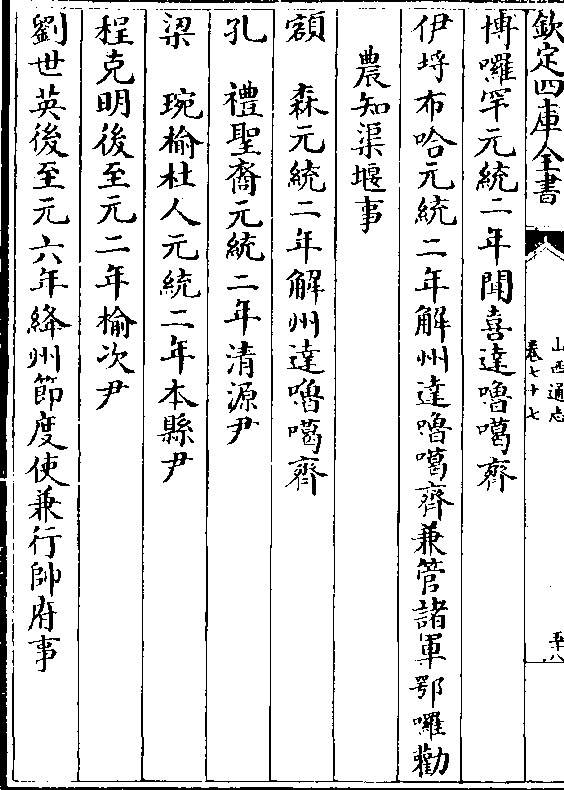 欽定四庫全書
山西通志
卷七十七
五十八
博囉罕元統二年聞喜達嚕噶齊
伊埒布哈元統二年解州達嚕噶齊兼管諸軍鄂囉勸
農知渠堰事
額　森元統二年解州達嚕噶齊
孔　禮聖裔元統二年清源尹
梁　琬榆杜人元統二年本縣尹
程克明後至元二年榆次尹
劉世英後至元六年絳州節度使兼行帥府事